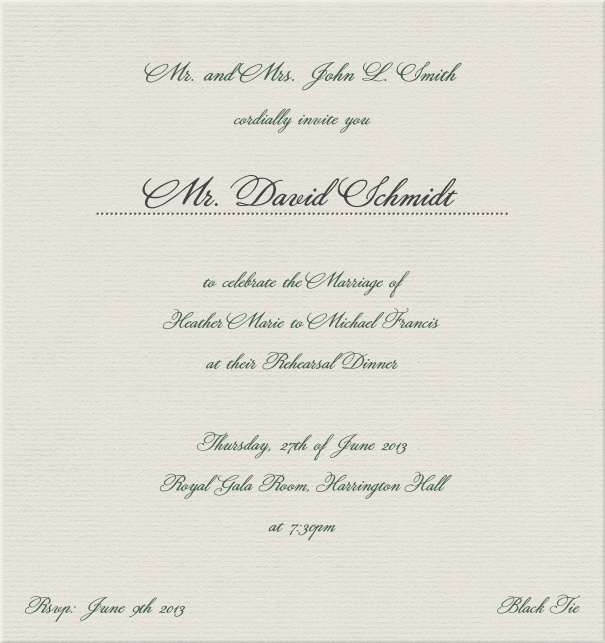 Mr. and Mrs. John L. Smith
cordially invite you
Mr. David Schmidt
to celebrate the Marriage of
Heather Marie to Michael Francis
at their Rehearsal Dinner
Thursday, 27th of June 2013
Royal Gala Room, Harrington Hall
at 7:30pm
Rsvp: June 9th 2013
Black Tie